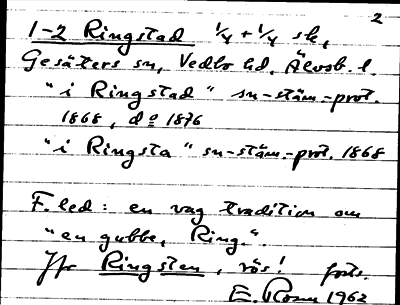 2
1-2 Ringstad 1/4 + 1/4 sk,
Gesäters sn, Vedbo hd. Älvsb. l.
"i Ringstad" sn-stäm.-prot.
1868, do 1876
"i Ringsta" sn-stäm.-prot. 1868
F. led: en vag tradition om
"en gubbe, Ring.".
Jfr Ringsten, rös! forts.
E. Rosen 1962